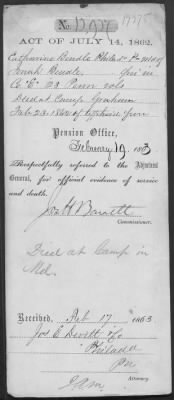 No. 12,927
ACT OF JULY 14, 1862.
Catharine Philada Pa
Frank
Co. E 23 Penn vols
Died at Camp Graham
Feb 23 1862 of
Pension Office,
February 19, 1863
Respectfully referred to the Adjutant
General, for official evidence of service
and death.
Jos. H. Barrett
Commissioner.
Died at Camp in
Md.
Received, Feb 17 1863
Jos E Devitt & Co
Philada
Pa
Attorney